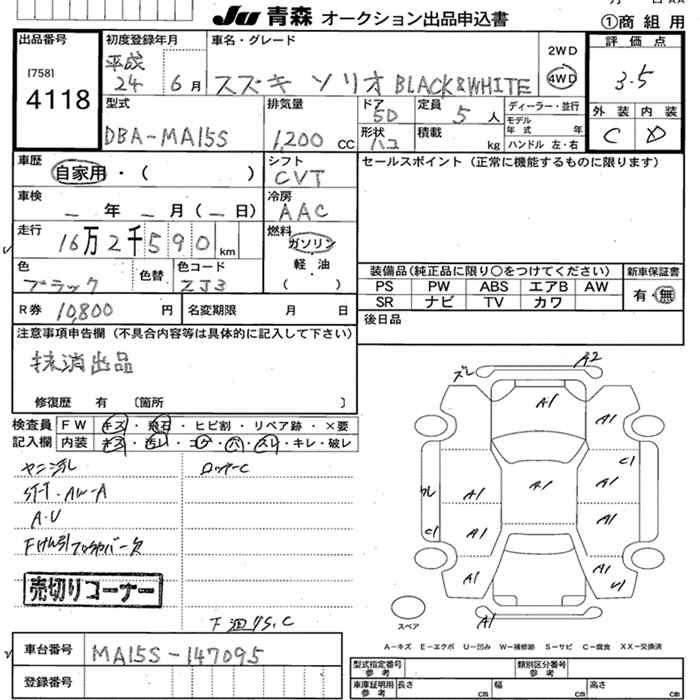 JU 青森 オークション出品申込書
①商組用
出品番号
[758]
4118
初度登録年月
平成
24 6月
車名・グレード
スズキ ソリオ BLACK&WHITE
2WD
4WD
評価点
3.5
外装 内装
C D
型式
DBA-MA15S
排気量
1,200 CC
ドア
5D
形状
ハコ
定員
5 人
積載
kg
ディーラー・並行
モデル
年式 年
ハンドル 左・右
車歴
自家用・( )
シフト
CVT
車検
_ 年 _ 月(_ 日)
冷房
AAC
走行
16万2千590 km
燃料
ガソリン
軽・油
( )
色
ブラック
色替
色コード
ZJ3
R券 10,800 円
名変期限 月 日
セールスポイント(正常に機能するものに限ります)
装備品(純正品に限り○をつけてください)
PS PW ABS エアB AW
SR ナビ TV カワ
新車保証書
有・無
後日品
注意事項申告欄(不具合内容等は具体的に記入して下さい)
抹消出品
修復歴 有 〔箇所 〕
検査員 FW キズ・飛石・ヒビ割・リペア跡・×要
記入欄 内装 キズ・汚レ・コゲ・穴・スレ・キレ・破レ
ロッカーC
ST-T・AW-A
A・U
売切りコーナー
下廻りS、C
ズレ
A2
A1
A1
C1
A1
A1
A1
A1
A1
C1
A1
A1
U1
A1
スペア
A-キズ E-エクボ U-凹み W-補修跡 S-サビ C-腐食 XX-交換済
車台番号
MA15S-147095
登録番号
型式指定番号
参考
類別区分番号
参考
車庫証明用
参考
長さ cm 幅 cm 高さ cm